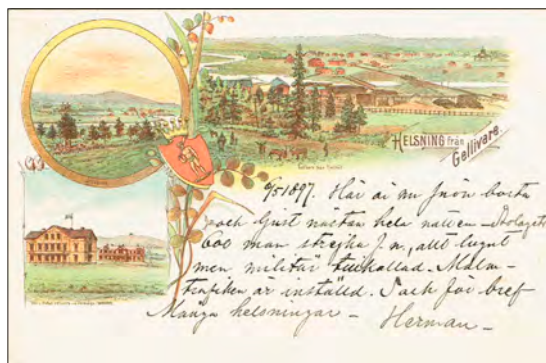 HELSNING från
Gellivare.
9/5 1897. Här är nu snön borta
och ljust nästan hela natten – Bolagets
600 man strejka f.n., allt lugnt
men militär tillkallad. Malm-
trafiken är inställd. Tack för bref
Många helsningar – Herman –